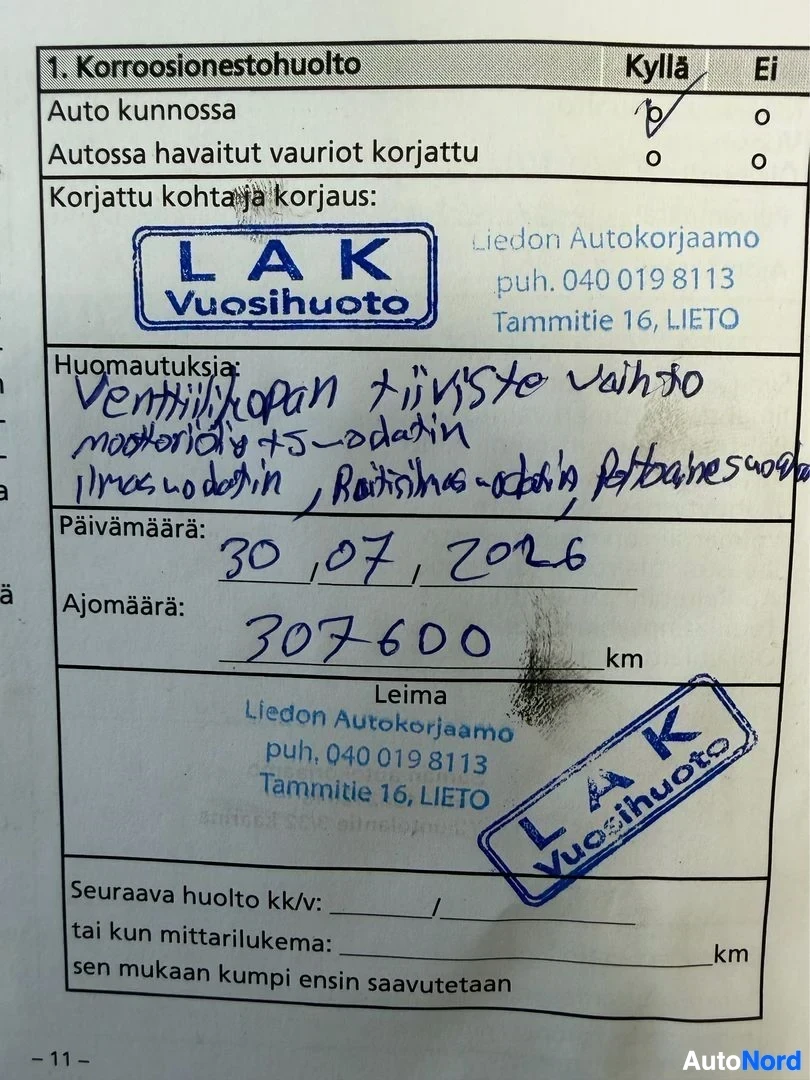 1. Korroosionestohuolto Kyllä Ei
Auto kunnossa o o
Autossa havaitut vauriot korjattu o o
Korjattu kohta ja korjaus:
LAK
Vuosihuoto
Liedon Autokorjaamo
puh. 040 019 8113
Tammitie 16, LIETO
Huomautuksia:
Venttiilikopan tiiviste vaihto
moottoriöljy +s-uodatin
ilmasuodatin, Raitisilmasuodatin,
Päivämäärä: 30,07,2026
Ajomäärä: 307600 km
Leima
Liedon Autokorjaamo
puh. 040 019 8113
Tammitie 16, LIETO
LAK
Vuosihuoto
Seuraava huolto kk/v: /
tai kun mittarilukema: km
sen mukaan kumpi ensin saavutetaan
– 11 –
AutoNord